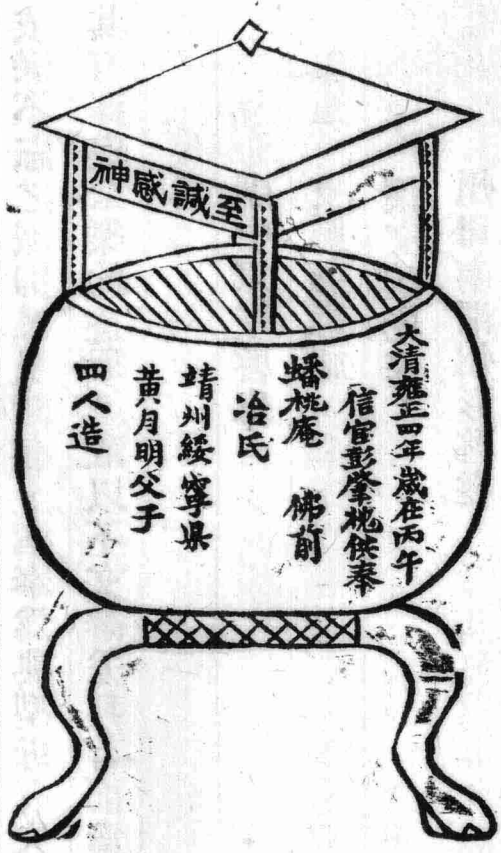 至誠感神
大清雍正四年歲在丙午
信官彭肇槐供奉
蟠桃庵 佛前
冶氏
靖州綏寧県
黄月明父子
四人造